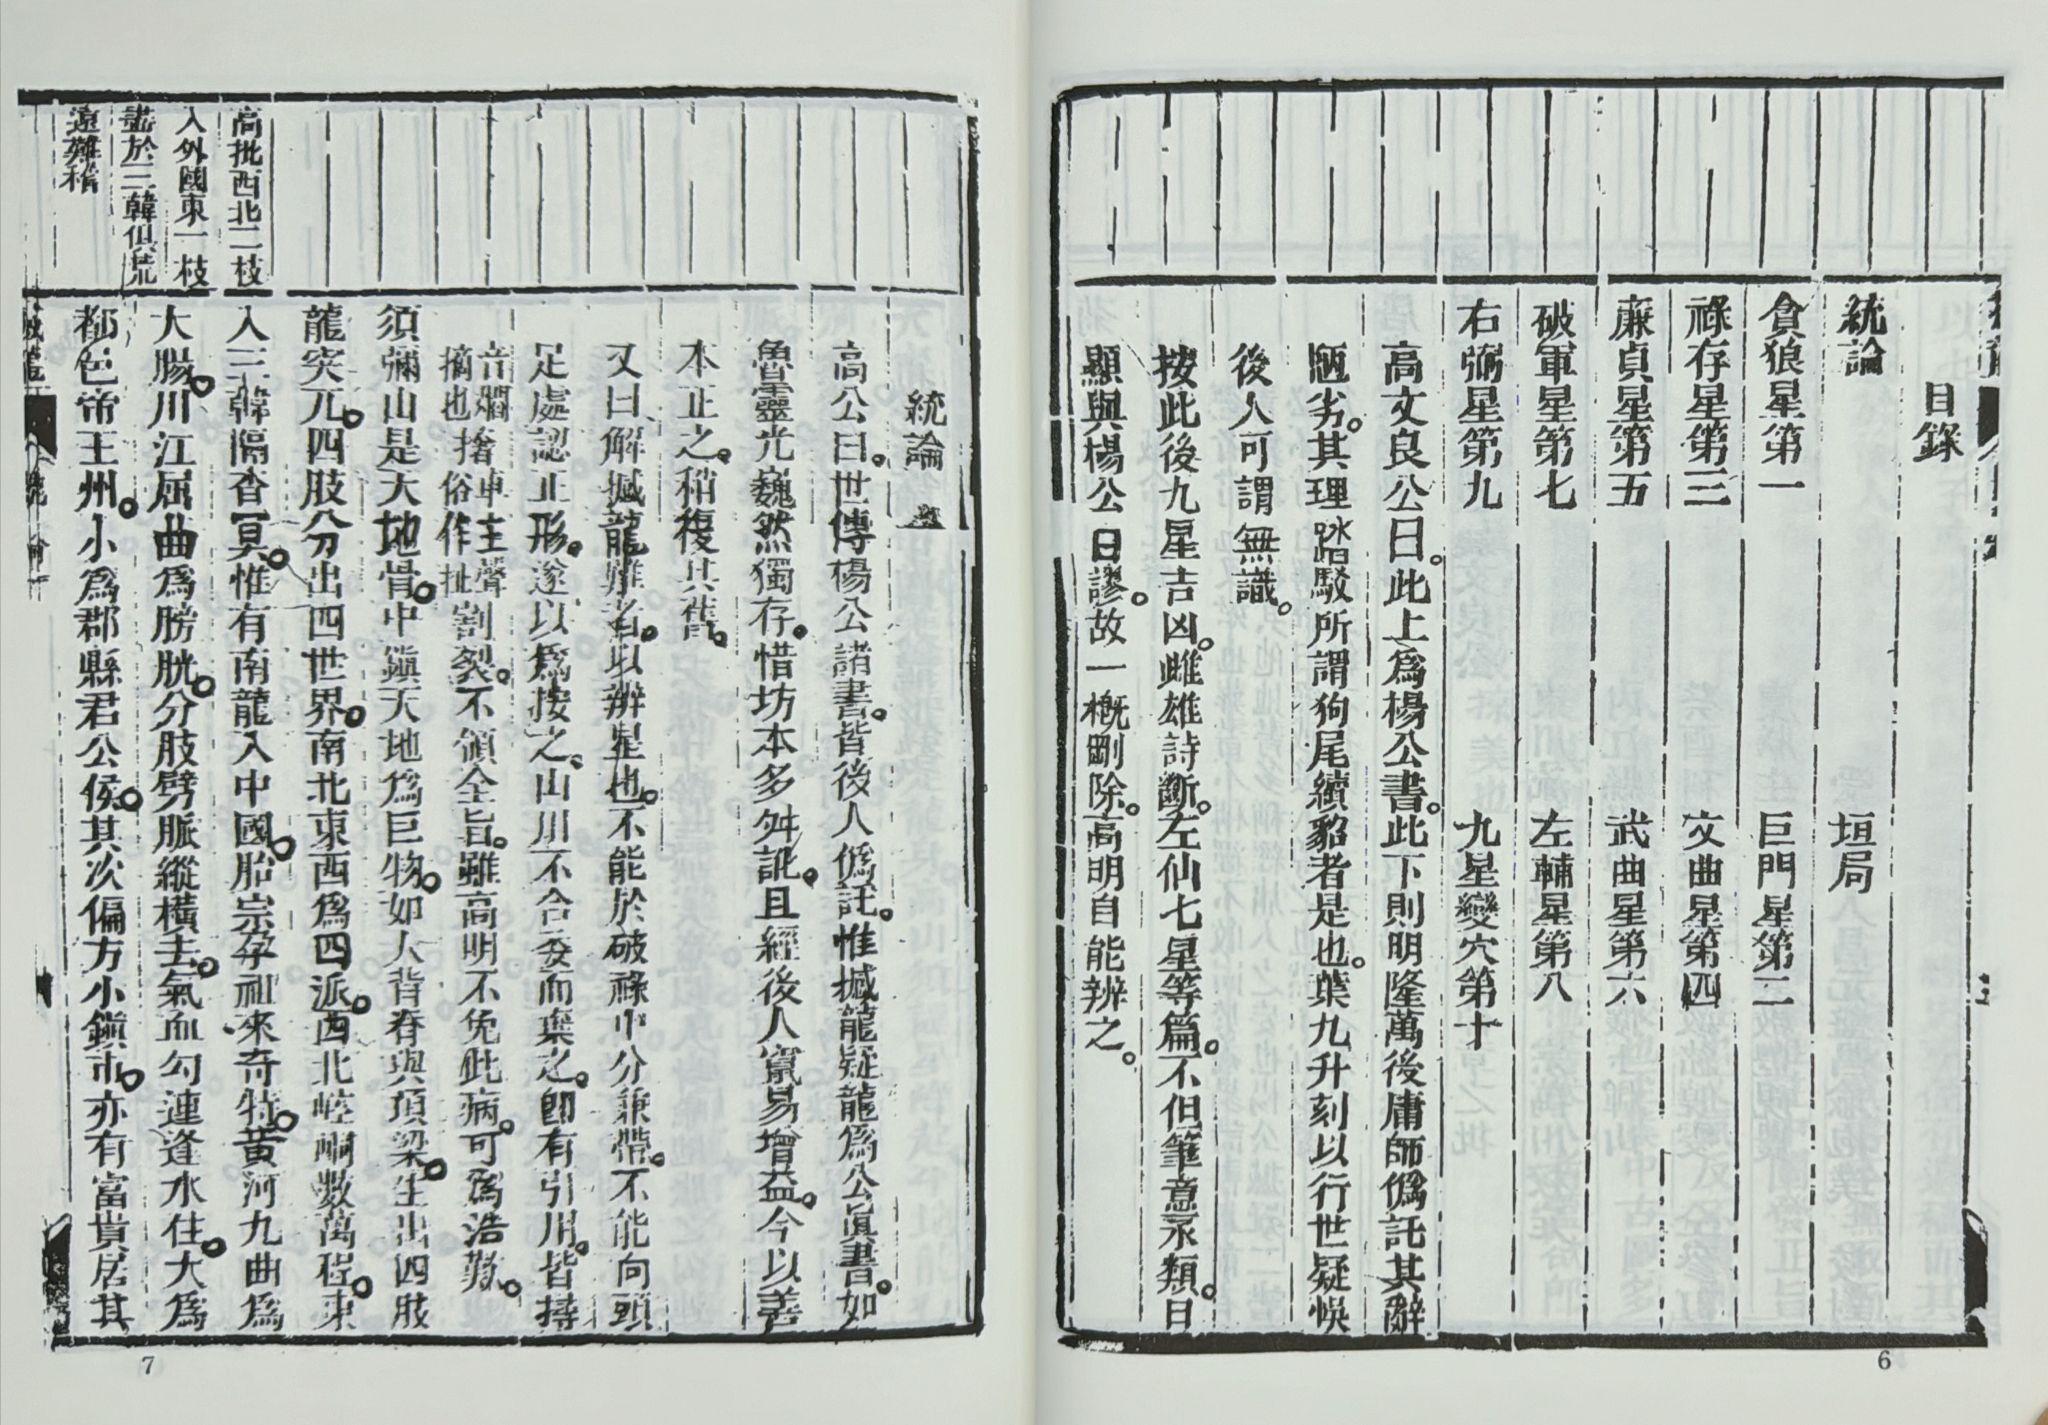 目錄
統論　垣局
貪狼星第一　巨門星第二
祿存星第三　文曲星第四
廉貞星第五　武曲星第六
破軍星第七　左輔星第八
右弼星第九　九星變穴第十
高文良公曰。此上爲楊公書。此下則明隆萬後庸師僞託其辭
陋劣。其理踏駁所謂狗尾續貂者是也。葉九升刻以行世疑悞
後人可謂無識。
按此後九星吉凶。雌雄詩斷。左仙七星等篇。不但筆意不類。日
顯與楊公日謬。故一概刪除。高明自能辨之。
6
高批西北二枝
入外國東一枝
盡於三韓俱荒
遠難稽
統論上
高公曰。世傳楊公諸書。皆後人僞託。惟撼龍疑龍爲公眞書。如
魯靈光巍然獨存。惜坊本多舛訛。且經後人竄易增益。今以善
本正之。稍復其舊。
又曰解撼龍難者。以辨星也。不能於破祿中分兼帶。不能向頭
足處認正形。遂以爲按之。山川不合委而棄之。卽有引用。皆撏
音燗撦車主聲
摘也撦俗作扯割裂。不領全旨。雖高明不免此病。可爲浩歎。
須彌山是天地骨。中鎭天地爲巨物。如人背脊與項梁。生出四肢
龍突兀。四肢分出四世界。南北東西爲四派。西北崆峒數萬程。東
入三韓隔杳冥。惟有南龍入中國。胎宗孕祖來奇特。黃河九曲爲
大腸。川江屈曲爲膀胱。分肢劈脈縱橫去。氣血勾連逢水住。大爲
都邑帝王州。小爲郡縣君公侯。其次偏方小鎭市。亦有富貴居其
7